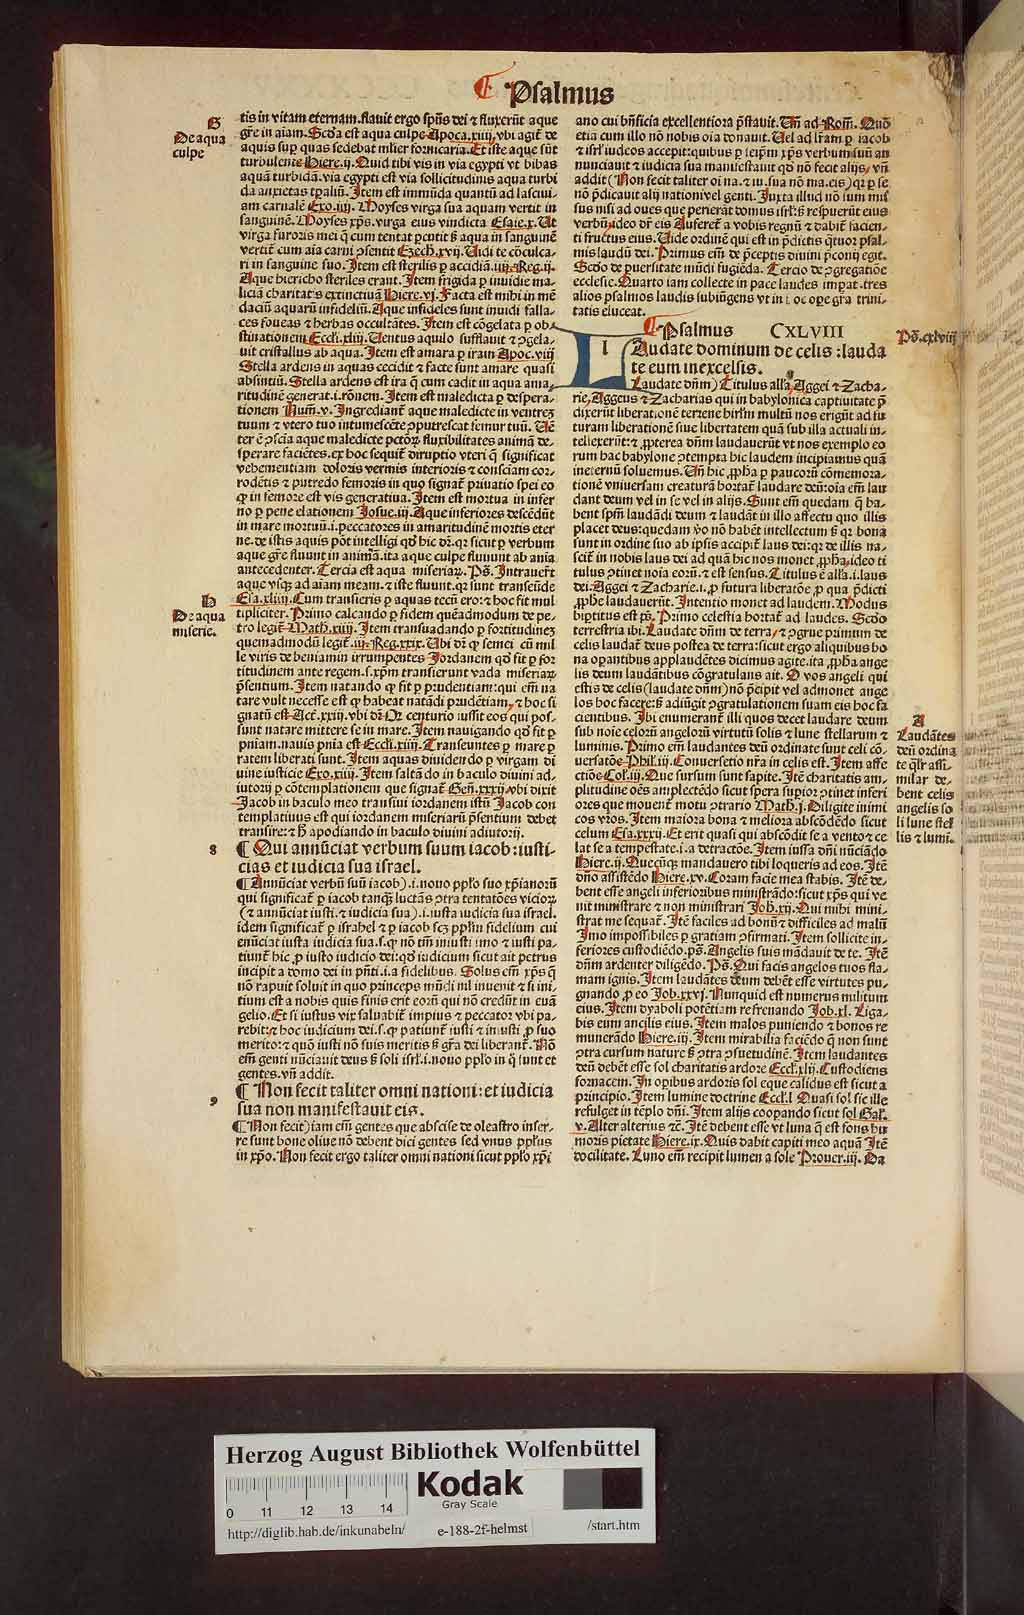 Psalmus
G
De aqua
culpe
tis in vitam eternam. flauit ergo spūs dei & fluxerūt aque
gr̄e in aīam. Scd̄a est aqua culpe Apoca.xiiij. vbi agit̄ de
aquis sup quas sedebat mlier fornicaria. Et iste aque sūt
turbulente Hiere.ij. Quid tibi vis in via egypti vt bibas
aquā turbidā. via egypti est via sollicitudinis aqua turbi
da anxietas tp̄aliū. Item est immūda quantū ad lasciui
am carnalē Exo.iiij. Moyses virga sua aquam vertit in
sanguinē. Moyses xp̄s. virga eius vindicta Esaie.x. Ut
virga furoris mei q̄ cum tentat p̄entit s̄ aqua in sanguinē
vertit̄ cum aīa carni ꝯsentit Ezech.xvij. Uidi te cōculca-
ri in sanguine suo. Item est sterilis p accidiā.iiij.Reg.ij.
Aque hiericho steriles erant. Item frigida p inuidie ma-
liciā charitat̄s extinctiuā Hiere.vj. Facta est mihi in mē
daciū aquarū infideliū. Aque infideles sunt inuidi falla-
ces foueas & herbas occultātes. Item est cōgelata p ob-
stinationem Eccli.xliij. Uentus aquilo sufflauit & ꝯgela-
uit cristallus ab aqua. Item est amara p iram Apoc.viij
Stella ardens in aquas cecidit & facte sunt amare quasi
absintiū. Stella ardens est ira q̄ cum cadit in aqua ama-
ritudinē generat.i.rōnem. Item est maledicta p despera-
tionem Num̄.v. Ingrediant̄ aque maledicte in ventrez
tuum & vtero tuo intumescēte ꝯputrescat femur tuū. Uē
ter ē ꝯscia aque maledicte pctōꝝ fluxibilitates animā de-
sperare faciētes. ex hoc sequit̄ diruptio vteri q̄ significat
vehementiam doloris vermis interioris & consciam cor-
rodētis & putredo femoris in quo signat̄ priuatio spei eo
ꝙ in femore est vis generatiua. Item est mortua in infer
no p pene elationem Josue.iij. Aque inferiores descēdūt
in mare mortuū.i.peccatores in amaritudinē mortis eter
ne. de istis aquis pōt intelligi qd̄ hic dr̄. qr sicut p verbum
aque gr̄e fluunt in animā. ita aque culpe fluuunt ab ania
antecedenter. Tercia est aqua miseriaꝝ. Ps̄. Intrauer̄t
aque vsqꝫ ad aīam meam. & iste fluunt. qr sunt transeūde
h
De aqua
miserie.
Esa.xliij. Cum transieris p aquas tecū ero: & hoc fit mul
tipliciter. Primo calcando p fidem quēadmodum de pe-
tro legit̄ Math.xiiij. Item transuadando p fortitudinez
quemadmodū legit̄.iij.Reg.xix. Ubi dr̄ ꝙ semei cū mil
le viris de beniamin irrumpentes Jordanem qd̄ fit p for
titudinem ante regem.s.xp̄m transierunt vada miseriaꝝ
p̄sentium. Item natando ꝙ fit p prudentiam: qui em̄ na
tare vult necesse est ꝙ habeat natādi prudētiam, & hoc si
gnatū est Act̄.xxiij. vbi dr̄ Qz centurio iussit eos qui pos-
sunt natare mittere se in mare. Item nauigando qd̄ fit p
pniam. nauis pnīa est Eccli.xiiij. Transeuntes p mare p
ratem liberati sunt. Item aquas diuidendo p virgam di
uine iusticie Exo.xiiij. Item saltādo in baculo diuini ad-
iutorij p cōtemplationem que signat̄ Gen̄.xxxij. vbi dixit
Jacob in baculo meo transiui iordanem istū Jacob con
templatiuus est qui iordanem miseriarū p̄sentium debet
transire: & h̄ apodiando in baculo diuini adiutorij.
8
¶ Qui annūciat verbum suum iacob: iusti-
cias et iudicia sua israel.
¶ Annūciat verbū suū iacob).i.nouo pplo suo xp̄ianorū
qui significat̄ p iacob tanqꝫ luctās ꝯtra tentatōes vicioꝝ
(& annūciat iusti. & iudicia sua).i.iusta iudicia sua israel.
idem significat̄ p israhel & p iacob scz pplm fidelium cui
enūciat iusta iudicia sua.s.ꝙ nō tm̄ iniusti imo & iusti pa-
tiunt̄ hic ꝓ iusto iudicio dei: qd̄ iudicium sicut ait petrus
incipit a domo dei in pn̄ti.i.a fidelibus. Solus em̄ xp̄s q̄
nō rapuit soluit in quo princeps mūdi nil inuenit & si ini-
tium est a nobis quis finis erit eorū qui nō credūt in euā
gelio. Et si iustus vix saluabit̄ impius & peccator vbi pa-
rebit: & hoc iudicium dei.s.ꝙ patiunt̄ iusti & iniusti ꝓ suo
merito: & quō iusti nō suis meritis s̄ gr̄a dei liberant̄. Nō
em̄ genti nūciauit deus s̄ soli isrl̄.i.nouo pplo in q̄ sunt et
gentes. vn̄ addit.
9
¶ Non fecit taliter omni nationi: et iudicia
sua non manifestauit eis.
¶ Non fecit) iam em̄ gentes que abscise de oleastro inser-
te sunt bone oliue nō debent dici gentes sed vnus pplus
in xp̄o. Non fecit ergo taliter omni nationi sicut pplo xp̄i
ano cui bn̄ficia excellentiora p̄stauit. Un̄ ad Rom̄. Quō
etiā cum illo nō nobis oīa donauit. Uel ad lr̄am p iacob
& isrl̄ iudeos accepit: quibus p seipm̄ xp̄s verbum suū an
nunciauit & iudicia sua manifestauit qd̄ nō fecit alijs, vn̄
addit (Non fecit taliter oī na. & iu. sua nō ma. eis) qr p se
nō p̄dicauit alij nationi vel genti. Juxta illud nō sum mis
sus nisi ad oues que perierāt domus isrl̄: s̄ respuerūt eius
verbū, ideo dr̄ eis Auferet̄ a vobis regnū & dabit̄ facien-
ti fructus eius. Uide ordinē qui est in p̄dictis q̄tuor psal-
mis laudū dei. Primus em̄ de p̄ceptis diuini p̄conij egit.
Scd̄o de puersitate mūdi fugiēda. Tercio de ꝯgregatiōe
ecclesie. Quarto iam collecte in pace laudes impat. tres
alios psalmos laudis subiūgens vt in hoc oꝑe gr̄a trini-
tatis eluceat.
¶ Psalmus CXLVIII
Ps̄.cxlviij
l
Audate dominum de celis: lauda
te eum in excelsis.
Laudate dn̄m) Titulus alla. Aggei & Zacha-
rie, Aggeus & Zacharias qui in babylonica captiuitate p̄
dixerūt liberationē terrene hirlm̄ multū nos erigūt ad fu
turam liberationē siue libertatem quā sub illa actuali in-
tellexerūt: & ꝓpterea dn̄m laudauerūt vt nos exemplo eo
rum hac babylone ꝯtempta hic laudem incipiamus quā
in eternū soluemus. Un̄ hic ꝓpha p paucorū cōmemora-
tionē vniuersam creaturā hortat̄ laudare deū: oīa em̄ lau
dant deum vel in se vel in alijs. Sunt em̄ quedam q̄ ha-
bent spm̄ laudādi deum & laudāt in illo affectu quo illis
placet deus: quedam v̄o nō habēt intellectum s̄ qr bona
sunt in ordine suo ab ipsis accipit̄ laus dei: qr de illis na-
scit̄ in nobis laus dei ad quā hic nos monet ꝓpha, ideo ti
tulus ꝯtinet noīa eorū. & est sensus. Titulus ē alla.i.laus
dei. Aggei & Zacharie.i.ꝓ futura liberatōe ꝓ qua p̄dicti
ꝓphe laudauerūt. Intentio monet ad laudem. Modus
bipertitus est ps̄. Primo celestia hortat̄ ad laudes. Scd̄o
terrestria ibi. Laudate dn̄m de terra, & ꝯgrue primum de
celis laudat̄ deus postea de terra: sicut ergo aliquibus bo
na opantibus applaudētes dicimus agite. ita ꝓpha ange
lis deum laudātibus cōgratulans ait. O vos angeli qui
estis de celis (laudate dn̄m) nō p̄cipit vel admonet ange
los hoc facere: s̄ adiūgit ꝯgratulationem suam eis hoc fa
cientibus. Ibi enumerant̄ illi quos decet laudare deum
A
Laudātes
deū ordina
te qlr assi-
milar de-
bent celis
angelis so
li lune stel
lis & lumī.
sub noīe celorū angelorū virtutū solis & lune stellarum &
luminis. Primo em̄ laudantes deū ordinate sunt celi cō-
uersatōe Phil.iij. Conuersatio nr̄a in celis est. Item affe
ctiōe Col.iij. Que sursum sunt sapite. Itē charitatis am-
plitudine oēs amplectēdo sicut spera supior ꝯtinet inferi
ores que mouent̄ motu ꝯtrario Math.j. Diligite inimi
cos vr̄os. Item maiora bona & meliora abscōdēdo sicut
celum Esa.xxxij. Et erit quasi qui abscōdit se a vento & ce
lat se a tempestate.i.a detractōe. Item iussa dn̄i nūciādo
Hiere.ij. Quecūqꝫ mandauero tibi loqueris ad eos. Itē
dn̄o assistēdo Hiere.xv. Coram facie mea stabis. Itē de-
bent esse angeli inferioribus ministrādo: sicut xp̄s qui ve
nit ministrare & non ministrari Joh̄.xij. Qui mihi mini-
strat me sequat̄. Itē faciles ad bonū & difficiles ad malū
Imo impossibiles p gratiam ꝯfirmati. Item sollicite in-
feriores custodiēdo. ps̄. Angelis suis mādauit de te. Itē
dn̄m ardenter diligēdo. Ps̄. Qui facis angelos tuos fla-
mam ignis. Item laudātes deum debēt esse virtutes pu-
gnando ꝓ eo Job.xxvj. Nunquid est numerus militum
eius. Item dyaboli potētiam refrenando Job.xl. Liga-
bis eum ancilis eius. Item malos puniendo & bonos re
munerādo Hiere.iij. Item mirabilia faciēdo q̄ non sunt
ꝯtra cursum nature s̄ ꝯtra ꝯsuetudinē. Item laudantes
deū debēt esse sol charitatis ardore Eccli.xlij. Custodiens
fornacem. In opibus ardoris sol eque calidus est sicut a
principio. Item lumine doctrine Eccli.l Quasi sol sic ille
refulget in tēplo dn̄i. Item alijs coopando sicut sol Gal̄.
v. Alter alterius &c̄. Itē debent esse vt luna q̄ est fons hu
moris pietate Hiere.ix. Quis dabit capiti meo aquā Itē
docilitate. Luna em̄ recipit lumen a sole Prouer.iij. Da
Herzog August Bibliothek Wolfenbüttel
Kodak
Gray Scale
0 11 12 13 14
http://diglib.hab.de/inkunabeln/ e-188-2f-helmst /start.htm